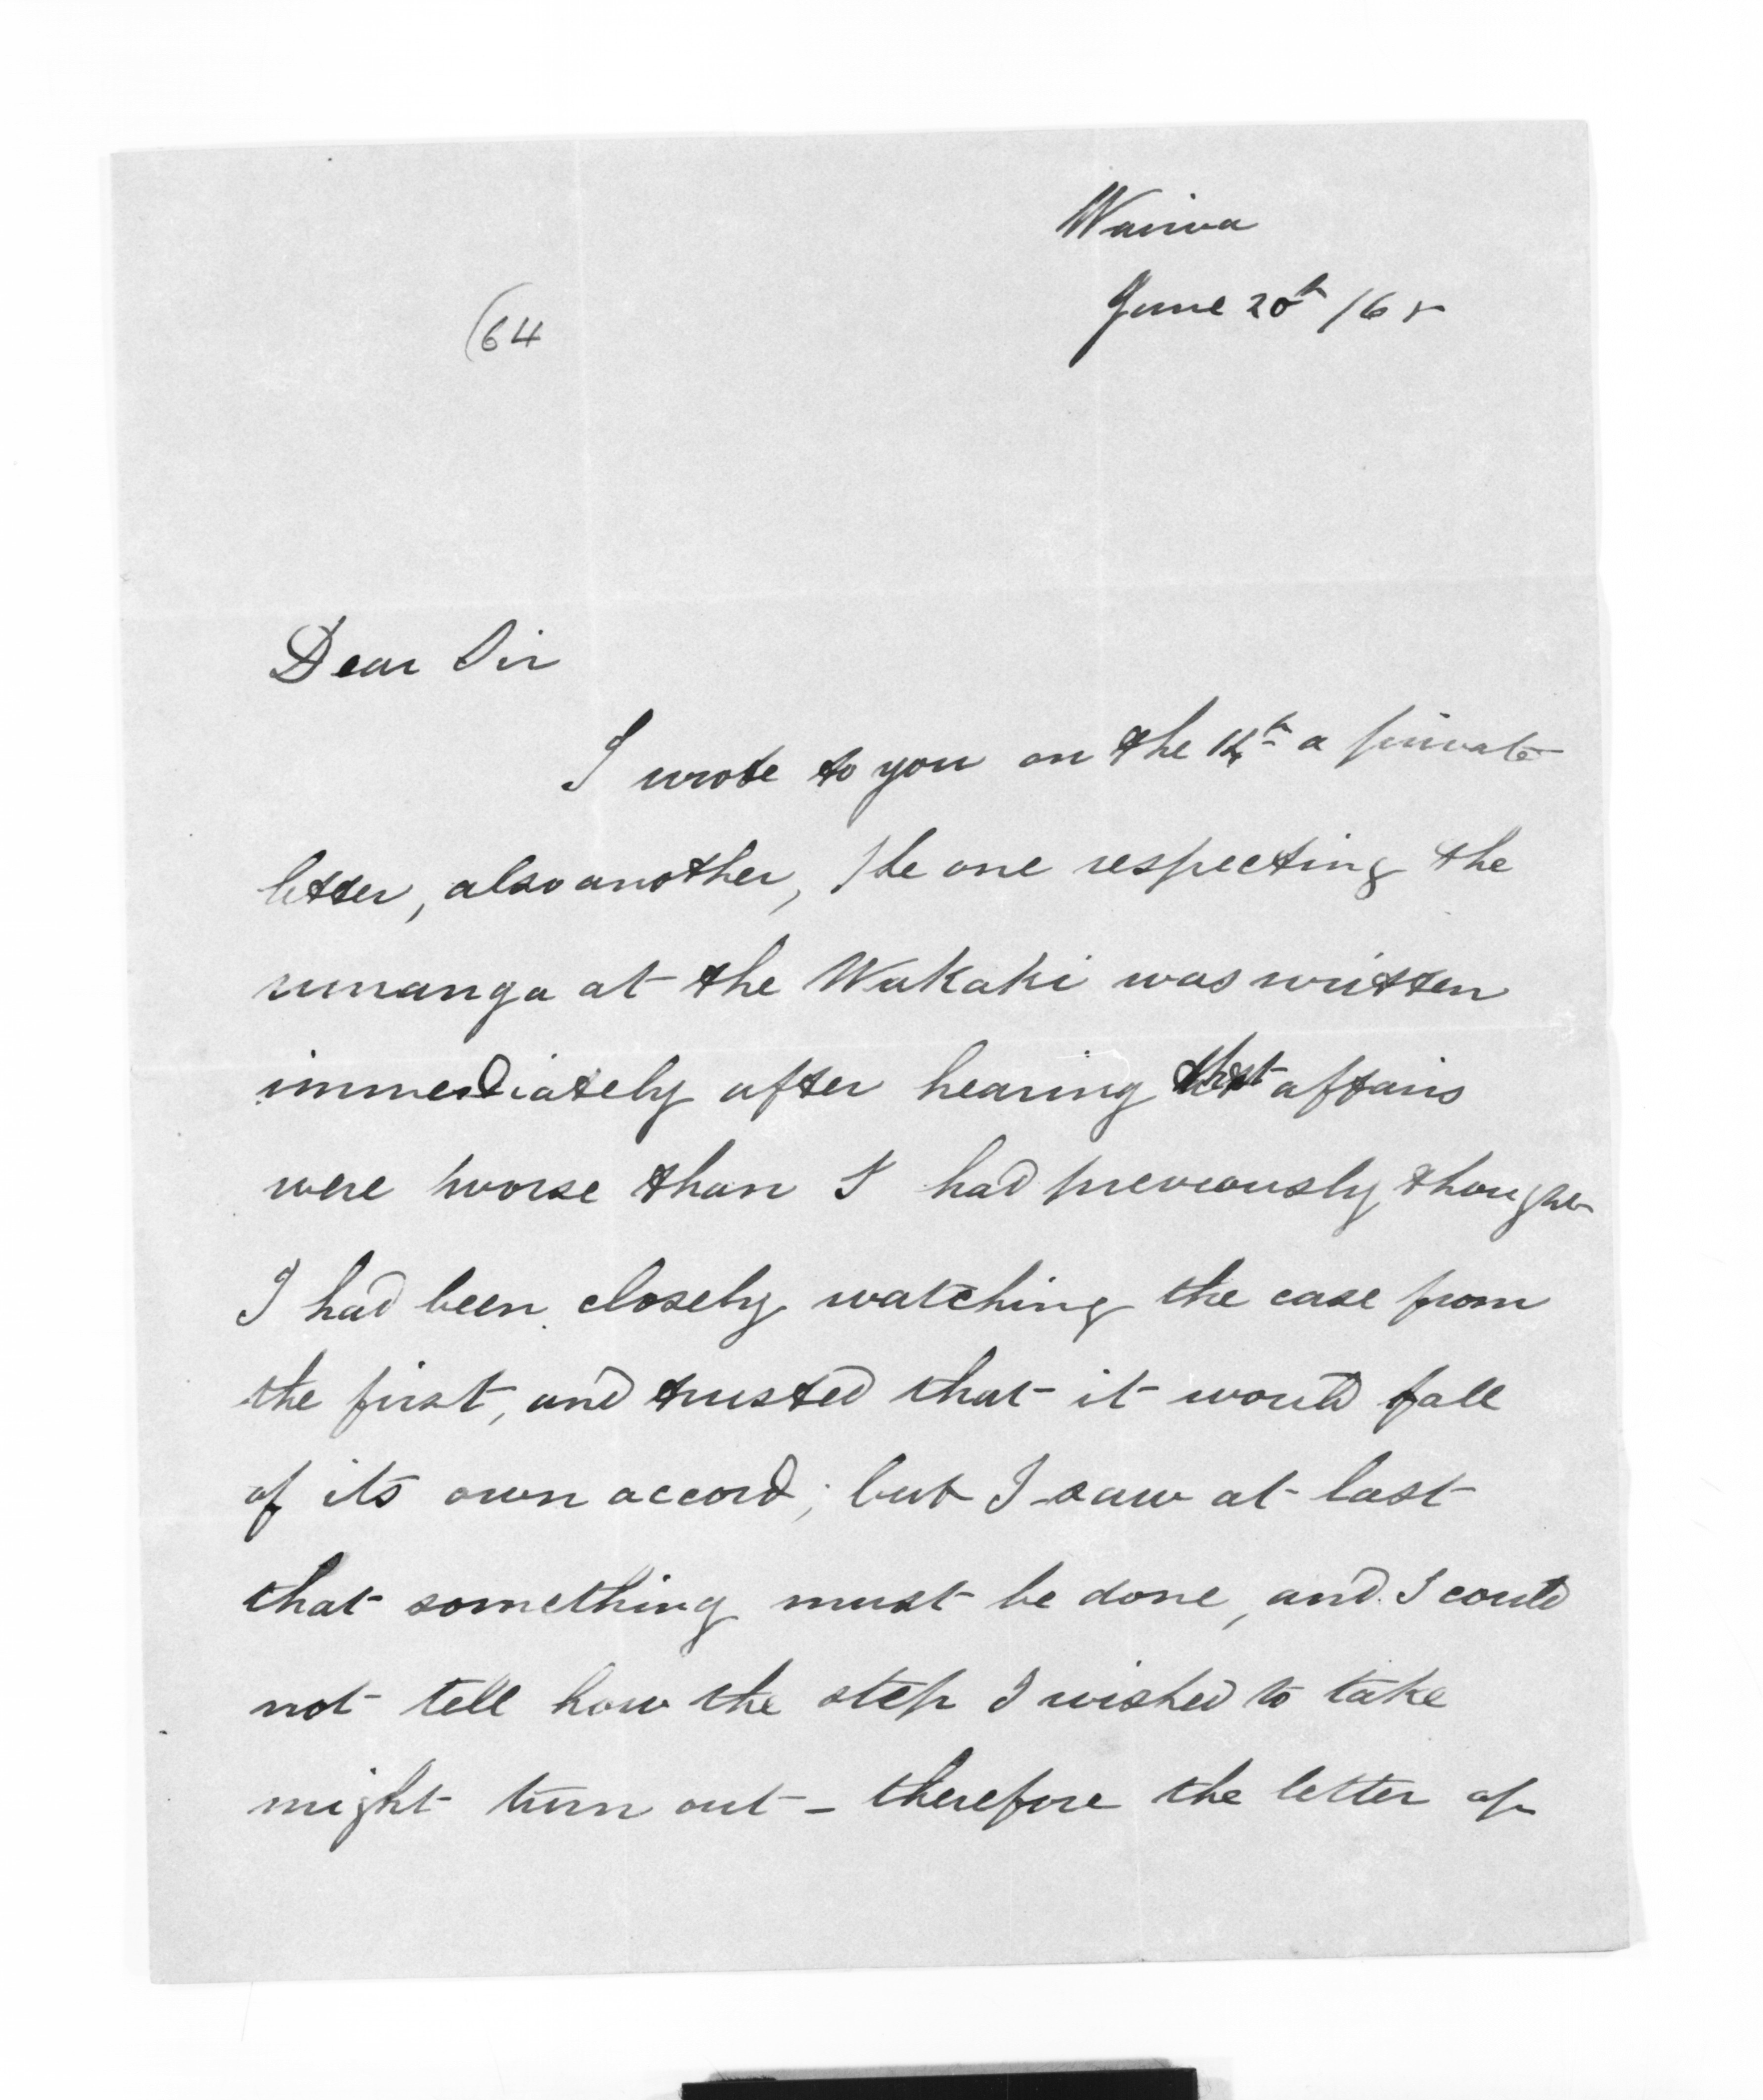 Wairoa
June 20th /65
(64
Dear Sir
I wrote to you on the a private
letter, also another, the one respecting the
runanga at the Wakaki was written
immediately after hearing that affairs
were worse than I had previously thought
I had been closely watching the case from
the first, and trusted that it would fall
of its own accord; but I saw at last
that something must be done, and I could
not tell how the step I wished to take
might turn out - therefore the letter of